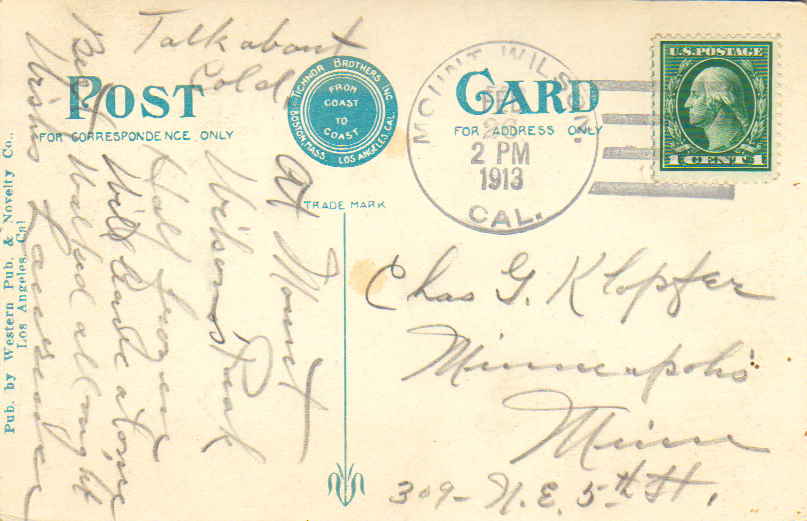 Talk about
Cold.
POST
FOR CORRESPONDENCE ONLY
TICHNOR BROTHERS INC.
BOSTON, MASS. LOS ANGELES, CAL.
FROM
COAST
TO
COAST
TRADE MARK
CARD
FOR ADDRESS ONLY
MOUNT WILSON.
FEB
2 PM
1913
CAL.
U.S. POSTAGE
1 CENT 1
At Mount
Wilsons Peak
Half frozen
Will leave at one
Walked all night
Best
Wishes
Chas G. Klopfer
Minneapolis
Minn
309- N.E. 5th St.
Pub. by Western Pub. & Novelty Co.,
Los Angeles, Cal